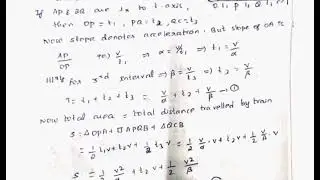 If AP & QB are ⊥s to t-axis,
then OP = t₁, PQ = t₂, QC = t₃
Now slope denotes acceleration. But slope of OA is
AP/OP ⇒ v/t₁ ⇒ α = v/t₁ ⇒ t₁ = v/α
for 3rd interval ⇒ β = v/t₃ ⇒ t₃ = v/β
T = t₁ + t₂ + t₃ = v/α + t₂ + v/β —①
Now total area = total distance travelled by train
S = ΔOPA + □APQB + ΔQCB
= ½ t₁v + t₂v + ½ t₃ v = ½ v/α v + t₂v + ½ v/β v
S = ½ v²/α + t₂v + ½ v²/β